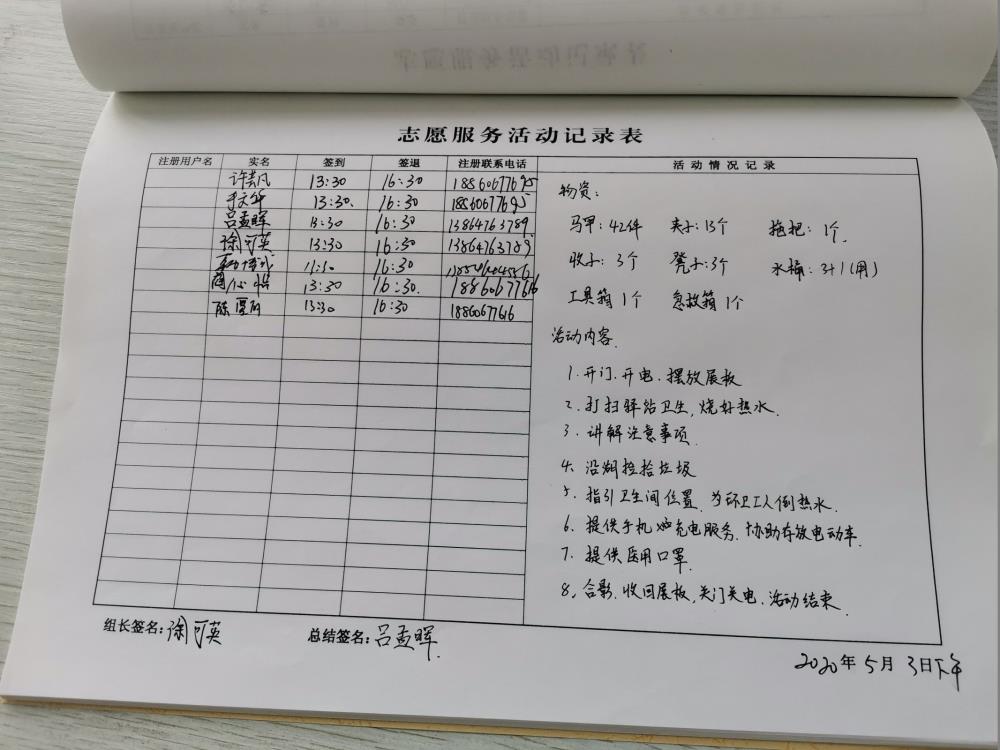 志愿服务活动记录表
注册用户名 实名 签到 签退 注册联系电话 活动情况记录
13:30 16:30 18560677695
13:30. 16:30 18560677695
吕孟晖 13:30 16:30 13864763789
徐可英 13:30 16:30 13864763789
16:30
13:30 16:30. 18860677616
陈 13:30 16:30 1886067616
物资:
马甲:42件 夹子:13个 拖把:1个.
3个 凳子:3个 水桶:3+1(用)
工具箱1个 急救箱1个
活动内容.
1.开门.开电.摆放展板
2.打扫驿站卫生,烧好热水.
3.讲解注意事项.
4.沿湖捡拾垃圾
5.指引卫生间位置.为环卫工人倒热水.
6.提供手机充电服务.协助存放电动车.
7.提供医用口罩.
8.合影.收回展板,关门关电.活动结束.
组长签名:徐可英 总结签名:吕孟晖.
2020年5月3日下午